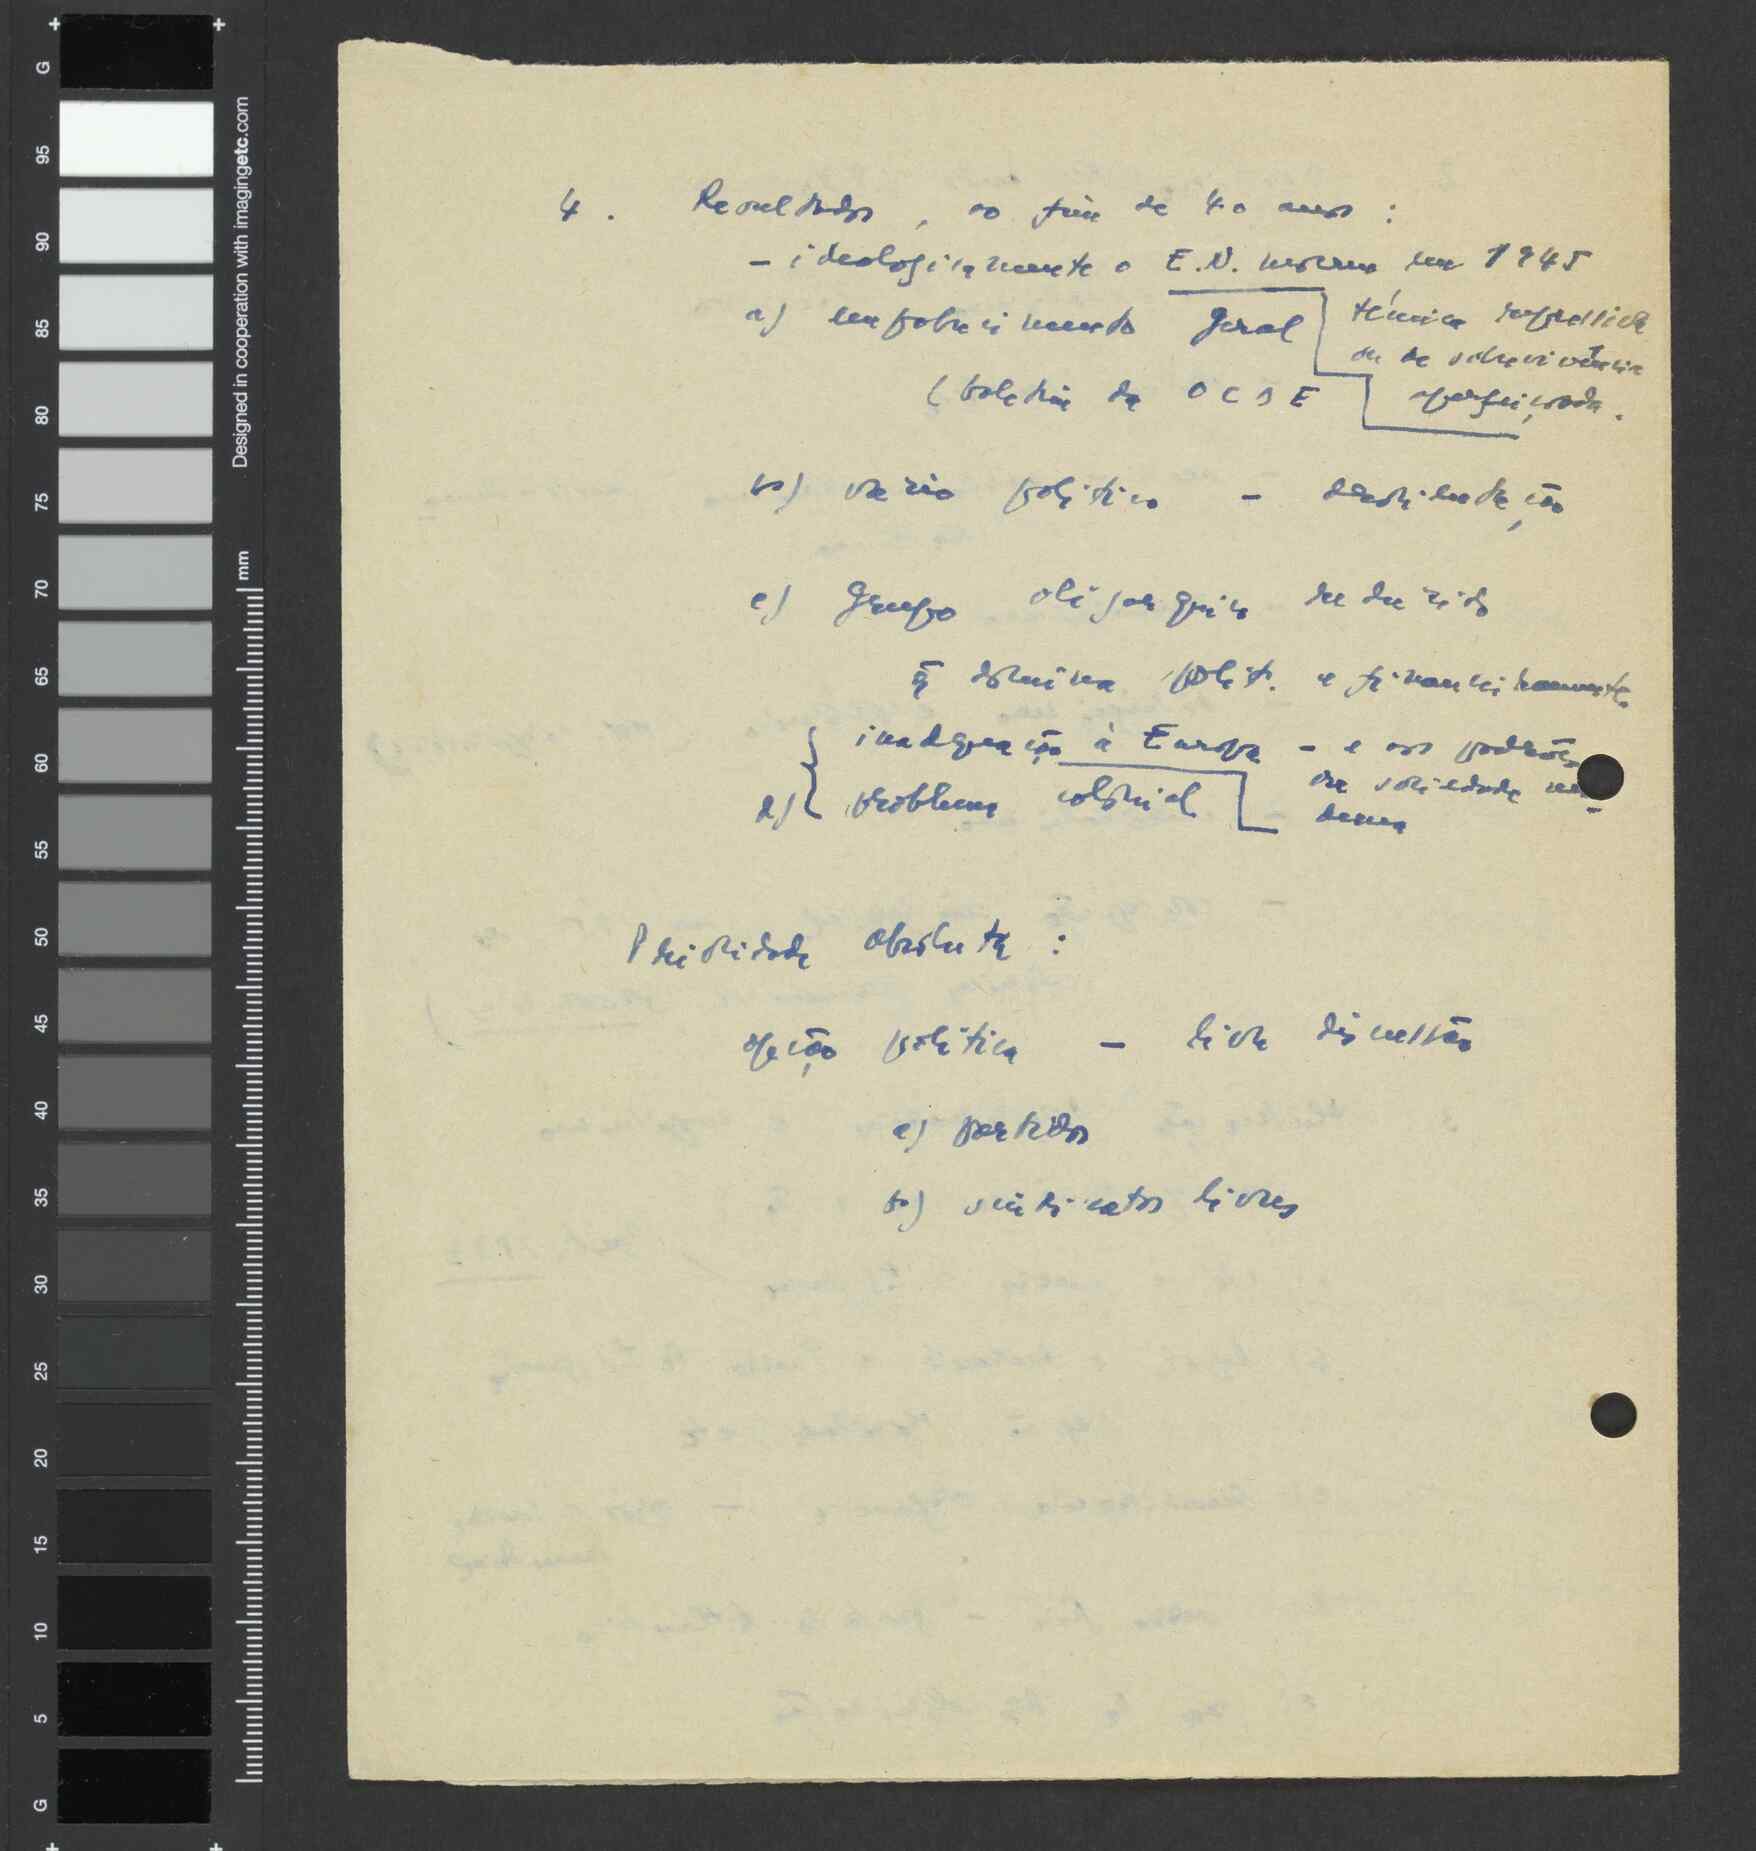 4. Resultados, ao fim de 40 anos:
– ideologicamente o E.N. morreu em 1945
a) empobrecimento geral
técnica repressiva
ou de sobrevivência
aperfeiçoada.
(boletim da OCDE
b) vazio político – despolitização
c) Grupo oligárquico reduzido
q̄ domina polit. e financeiramente
inadequação à Europa – e aos padrões
da sociedade mo-
derna
d) problema colonial
Prioridade absoluta:
opção política – livre discussão
a) partidos
b) sindicatos livres
G
95
90
85
80
75
70
65
60
55
50
45
40
35
30
25
20
15
10
5
G
mm
Designed in cooperation with imagingetc.com